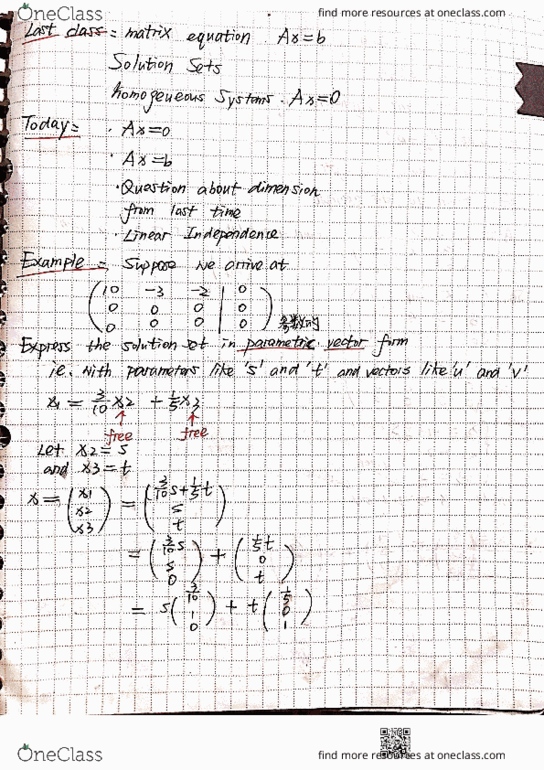 OneClass
find more resources at oneclass.com
Last class: matrix equation Ax=b
Solution Sets
homogeneous Systems. Ax=0
Today:
· Ax=0
· Ax=b
· Question about dimension
from last time
· Linear Independence
Example: Suppose we arrive at
10 -3 -2 | 0
0 0 0 | 0
0 0 0 | 0
Express the solution set in parametric vector form
ie. With parameters like 's' and 't' and vectors like 'u' and 'v'
x1 = 3/10 x2 + 1/5 x3
free free
Let x2 = s
and x3 = t
x = (x1 x2 x3) = (3/10 s + 1/5 t s t)
= (3/10 s s 0) + (1/5 t 0 t)
= s (3/10 1 0) + t (1/5 0 1)
OneClass
find more resources at oneclass.com